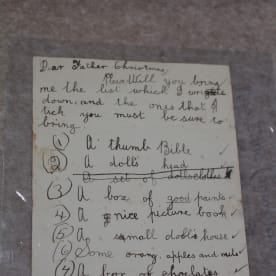 Dear Father Christmas,
Will you bring
me the list which I
down, and the ones that I
tick you must be sure to
bring.
① A thumb Bible ✓
② A doll's head
A set of dollsclothes
③ A box of good paints
④ A nice picture book ✓
⑤ A small doll's house ✓
⑥ Some orang, apples and nuts ✓
⑦ A box of choclates